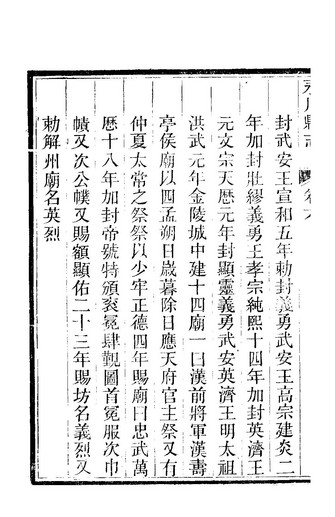 封武安王宣和五年勅封義勇武安王高宗建炎二
年加封壯繆義勇王孝宗純熙十四年加封英濟王
元文宗天厯元年封顯靈義勇武安英濟王明太祖
洪武元年金陵城中建十四廟一曰漢前將軍漢壽
亭侯廟以四孟朔日歲暮除日應天府官主祭又有
仲夏太常之祭祭以少牢正德四年賜廟曰忠武萬
厯十八年加封帝號特頒袞冕肆覲圖首冕服次巾
幘又次公幞又賜額顯佑二十三年賜坊名義烈又
勅解州廟名英烈